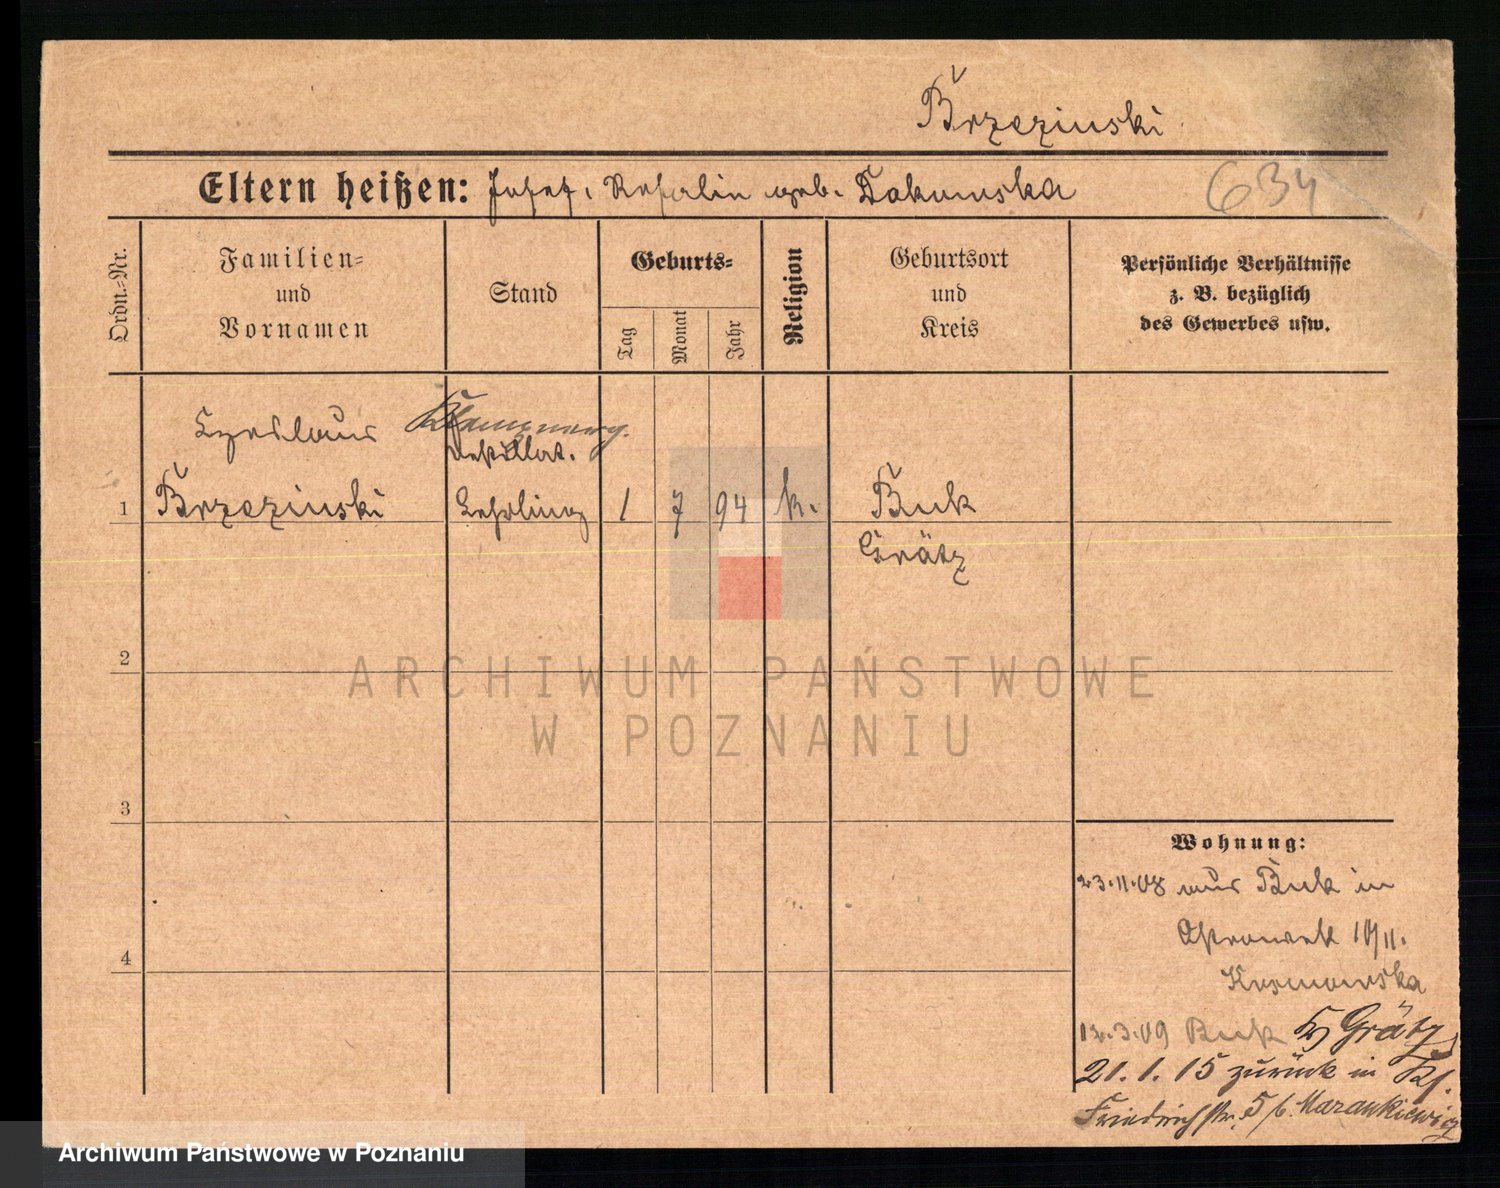 Brzezinski
Eltern heißen: Josef, Rosalie geb. Takomska
634
Ordn.=Nr.
Familien=
und
Vornamen
Stand
Geburts=
Tag
Monat
Jahr
Religion
Geburtsort
und
Kreis
Persönliche Verhältnisse
z. B. bezüglich
des Gewerbes usw.
Czeslaus
Klempnerg.
Destillat.
1 Brzezinski Lehrling 1 7 94 k. Buk
Grätz
2
3
4
Wohnung:
23.11.08 aus Buk in
10/11.
13.3.09 Buk Kr Grätz
21.1.15 zurück in
Friedrichstr. 5 b. Marankiewicz
ARCHIWUM PAŃSTWOWE
W POZNANIU
Archiwum Państwowe w Poznaniu